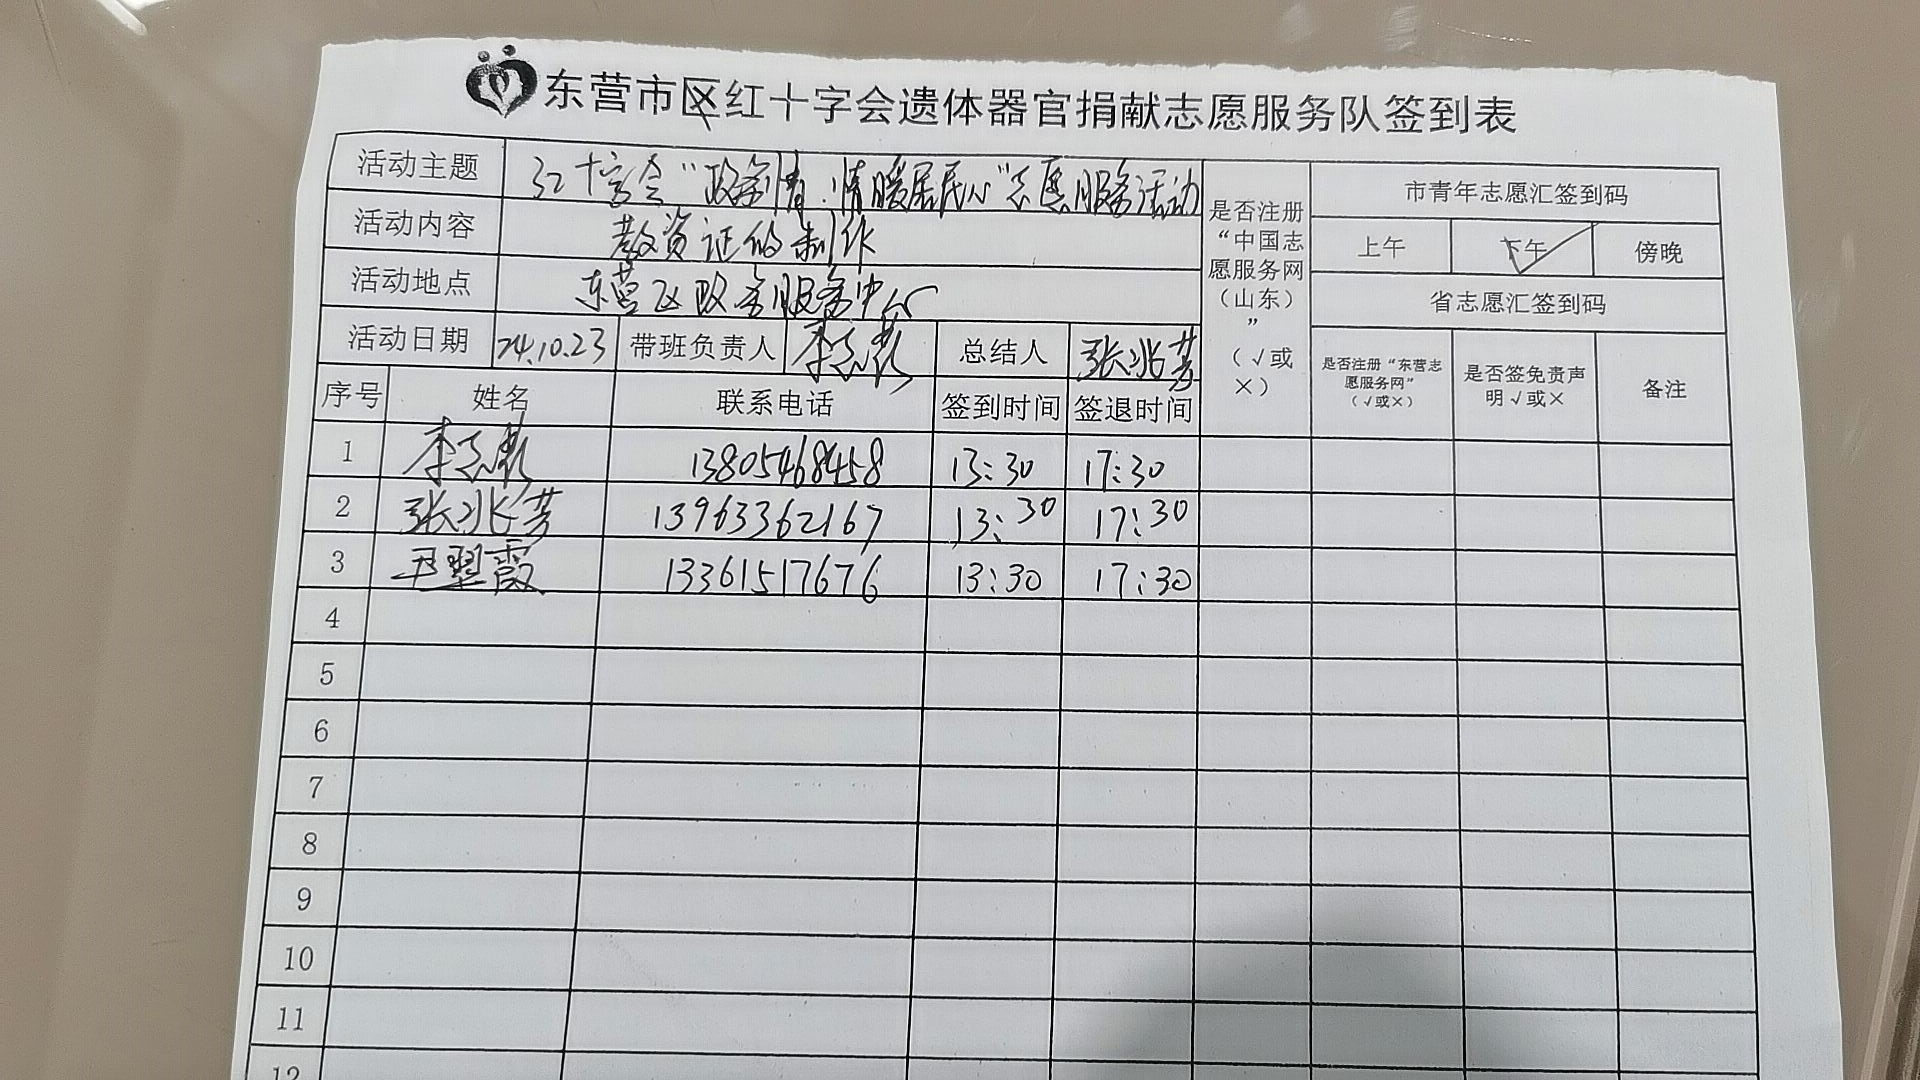 东营市区红十字会遗体器官捐献志愿服务队签到表
活动主题 红十字会"政务情·情暖居民心"志愿服务活动
活动内容 教资证的制作
活动地点 东营区政务服务中心
活动日期 24.10.23 带班负责人 李 总结人 张兆芳
是否注册“中国志愿服务网（山东）”（√或×）
市青年志愿汇签到码
上午 下午 ✓ 傍晚
省志愿汇签到码
是否注册“东营志愿服务网”（√或×） 是否签免责声明√或× 备注
序号 姓名 联系电话 签到时间 签退时间
1 李 13805468458 13:30 17:30
2 张兆芳 13963362167 13:30 17:30
3 王翠霞 13361517676 13:30 17:30
4
5
6
7
8
9
10
11
12